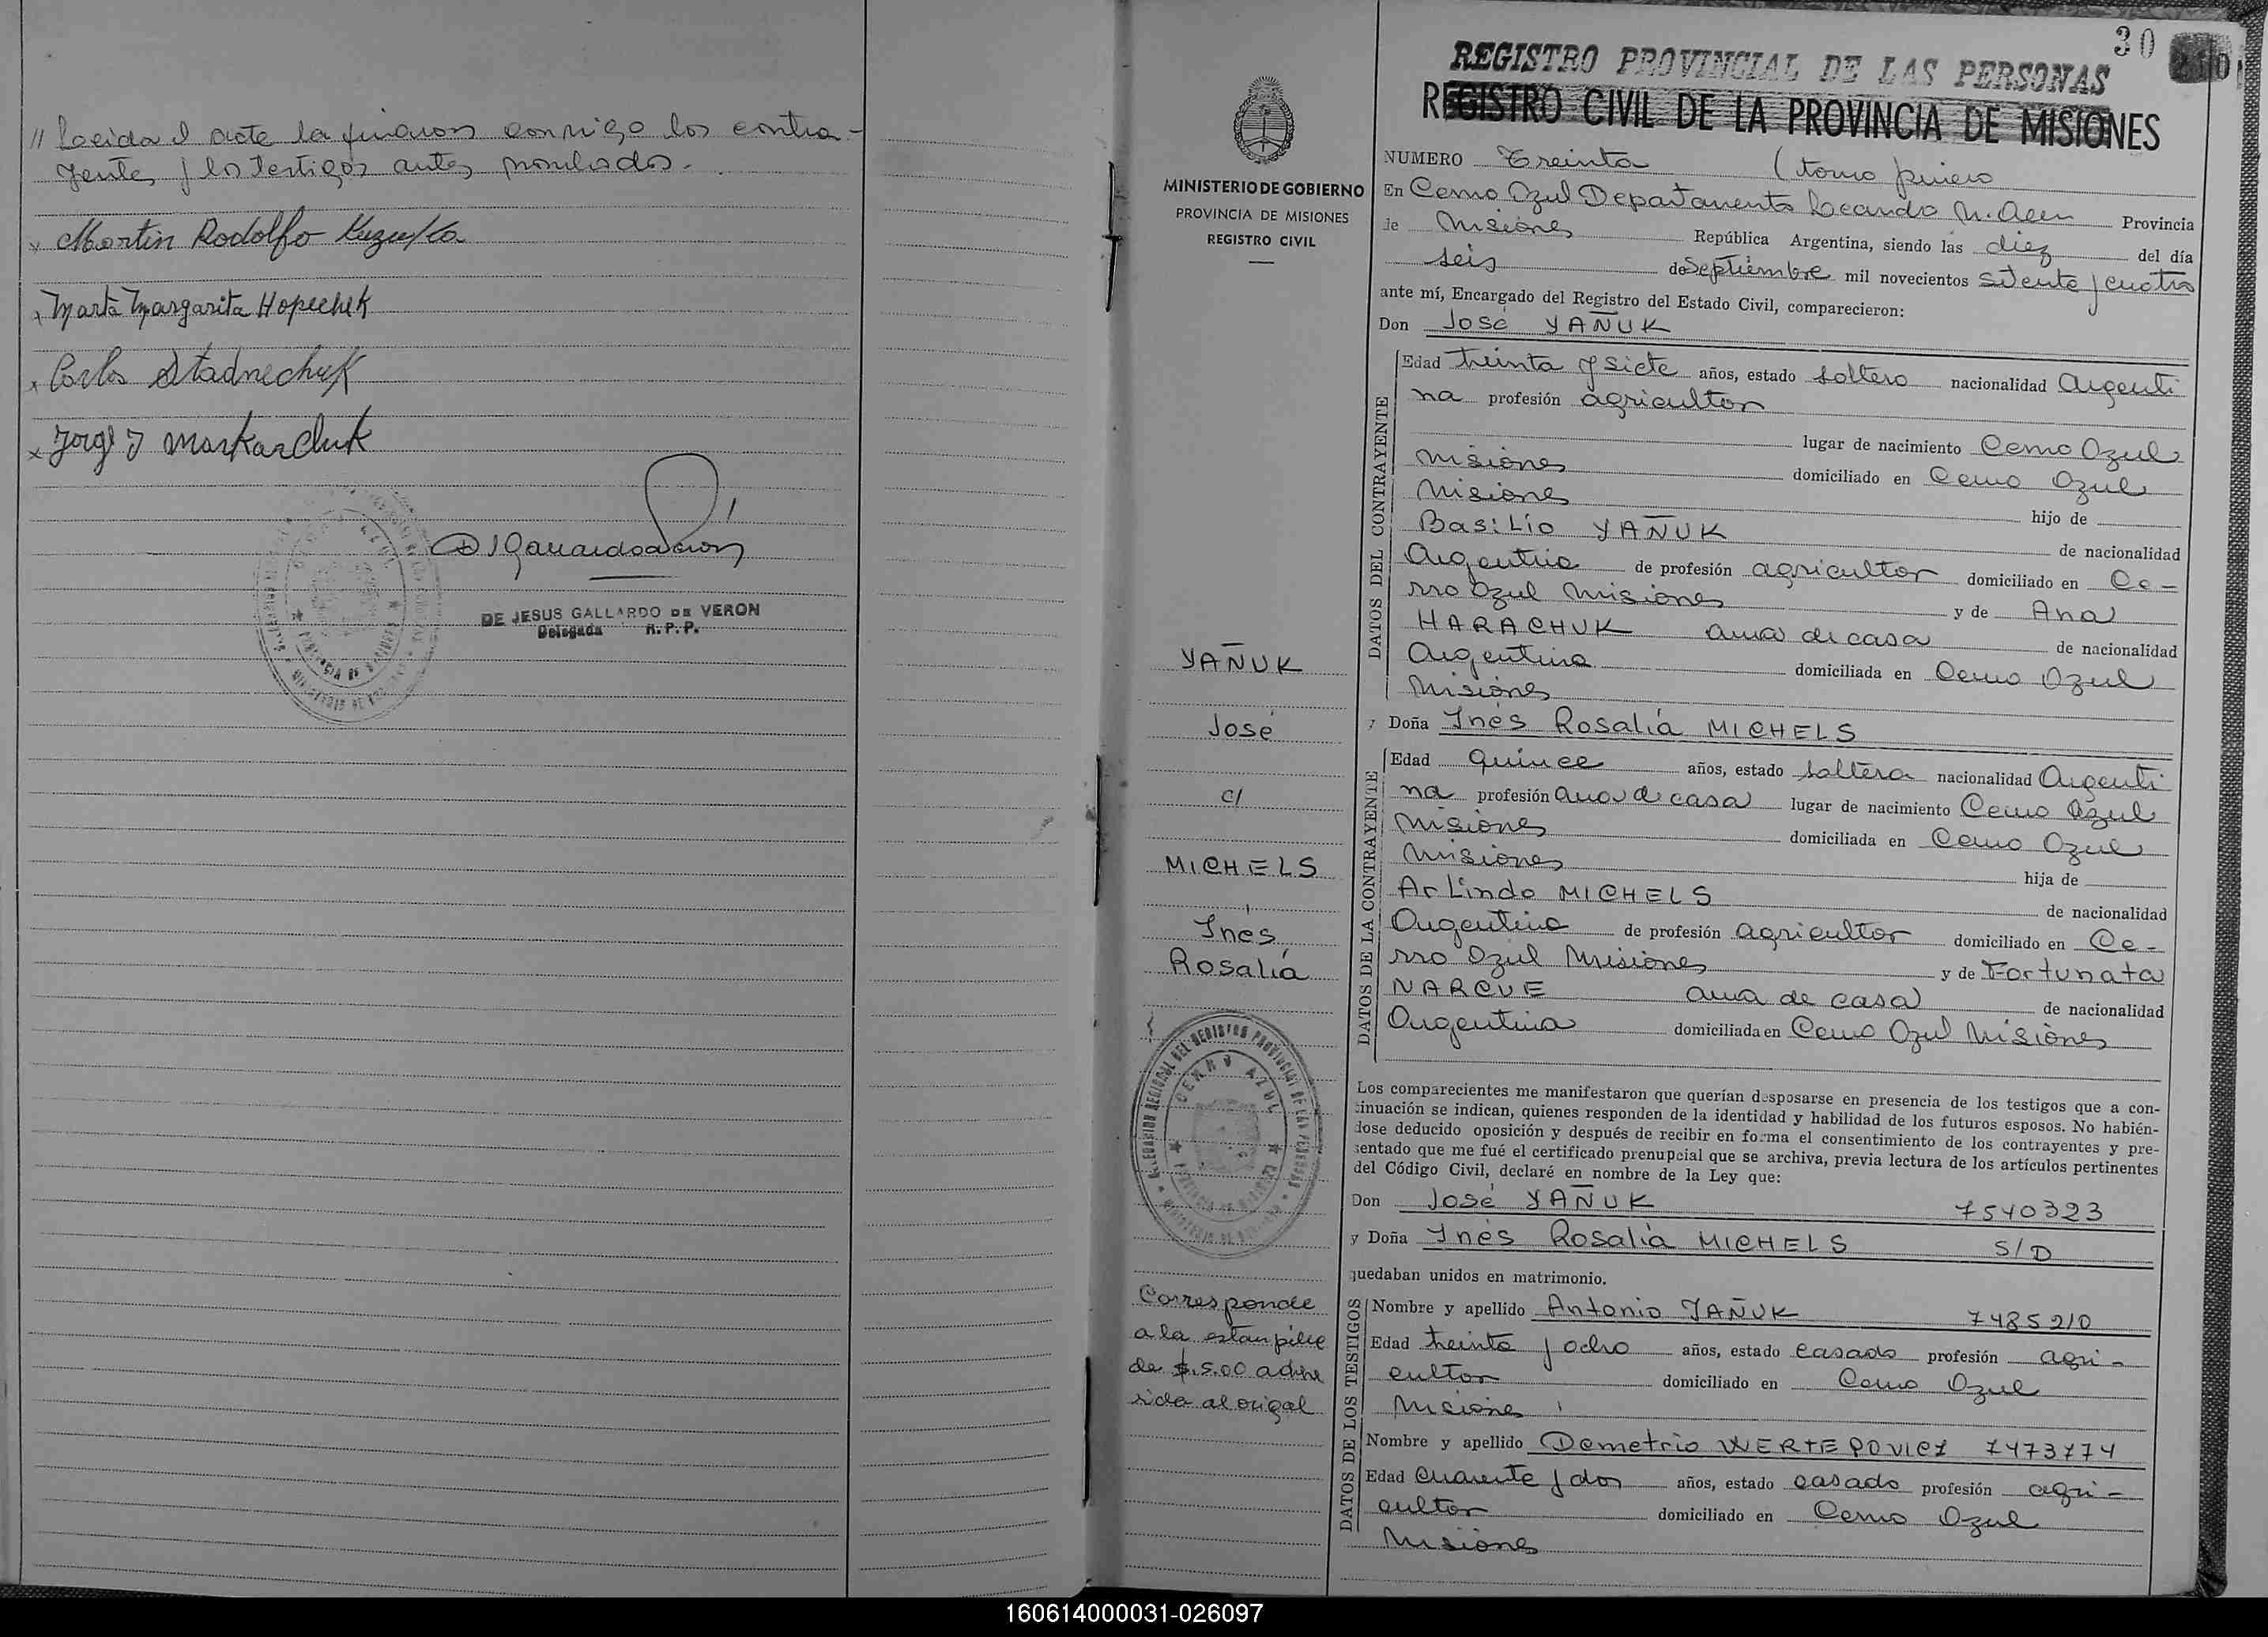 // Leida el acta la firmaron conmigo los contra-
yentes y los testigos antes nombrados.
x Martin Rodolfo
x Marta Margarita Hopechek
x Carlos Stadnechuk
x Jorge J Maskarchuk
DE JESUS GALLARDO DE VERON
Delegada R. P. P.
30
REGISTRO PROVINCIAL DE LAS PERSONAS
REGISTRO CIVIL DE LA PROVINCIA DE MISIONES
MINISTERIO DE GOBIERNO
PROVINCIA DE MISIONES
REGISTRO CIVIL
YAÑUK
José
c/
MICHELS
Inés
Rosalía
DELEGACION REGIONAL DEL REGISTRO PROVINCIAL DE LAS PERSONAS
CERRO AZUL
Corresponde
a la estampilla
de $.5.00 adhe
rida al origal
NUMERO Treinta (tomo primero
En Cerro Azul Departamento Leandro N. Alem Provincia
de Misiones República Argentina, siendo las diez del día
seis de Septiembre mil novecientos setenta y cuatro
ante mí, Encargado del Registro del Estado Civil, comparecieron:
Don José YAÑUK
DATOS DEL CONTRAYENTE
Edad treinta y siete años, estado soltero nacionalidad Argenti
na profesión agricultor
lugar de nacimiento Cerro Azul
Misiones domiciliado en Cerro Azul
Misiones hijo de
Basilio YAÑUK de nacionalidad
Argentina de profesión agricultor domiciliado en Ce-
rro Azul Misiones y de Ana
HARACHUK ama de casa de nacionalidad
Argentina domiciliada en Cerro Azul
Misiones
y Doña Inés Rosalía MICHELS
DATOS DE LA CONTRAYENTE
Edad quince años, estado soltera nacionalidad Argenti
na profesión ama de casa lugar de nacimiento Cerro Azul
Misiones domiciliada en Cerro Azul
Misiones hija de
Arlindo MICHELS de nacionalidad
Argentina de profesión agricultor domiciliado en Ce-
rro Azul Misiones y de Fortunata
NARCUE ama de casa de nacionalidad
Argentina domiciliada en Cerro Azul Misiones
Los comparecientes me manifestaron que querían desposarse en presencia de los testigos que a con-
tinuación se indican, quienes responden de la identidad y habilidad de los futuros esposos. No habién-
dose deducido oposición y después de recibir en forma el consentimiento de los contrayentes y pre-
sentado que me fué el certificado prenupcial que se archiva, previa lectura de los artículos pertinentes
del Código Civil, declaré en nombre de la Ley que:
Don José YAÑUK 7540323
y Doña Inés Rosalía MICHELS S/D
quedaban unidos en matrimonio.
DATOS DE LOS TESTIGOS
Nombre y apellido Antonio YAÑUK 7485210
Edad treinta y ocho años, estado casado profesión agri-
cultor domiciliado en Cerro Azul
Misiones
Nombre y apellido Demetrio WERTEPOVICZ 7473774
Edad cuarenta y dos años, estado casado profesión agri-
cultor domiciliado en Cerro Azul
Misiones
160614000031-026097